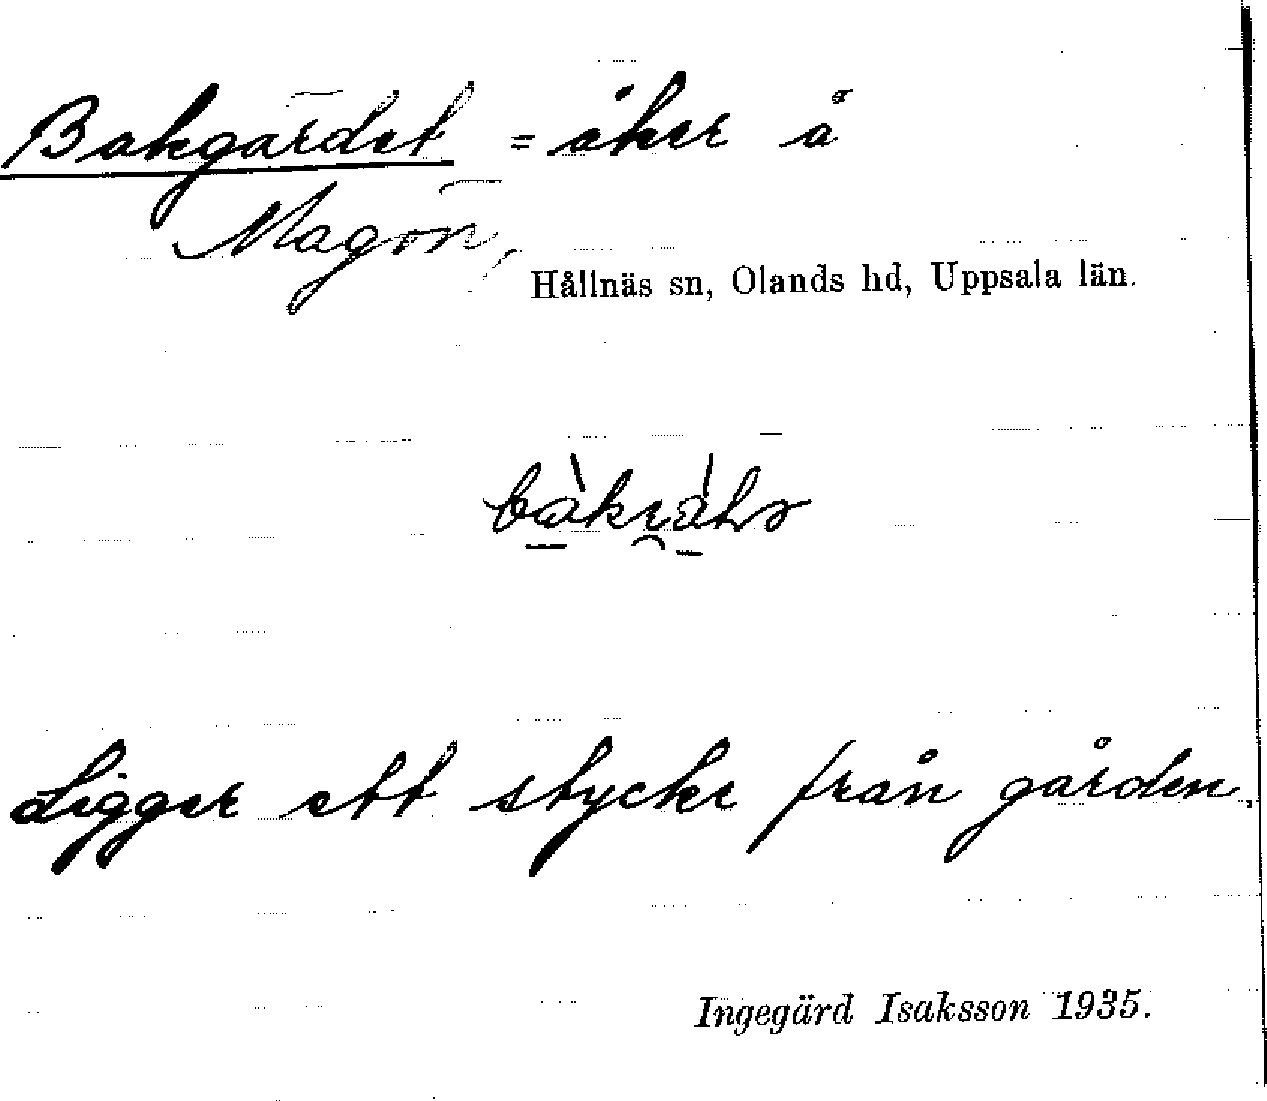 Bakgärdet = åker å
Magön,
Hållnäs sn, Olands hd, Uppsala län.
Ligger ett stycke från gården.
Ingegärd Isaksson 1935.